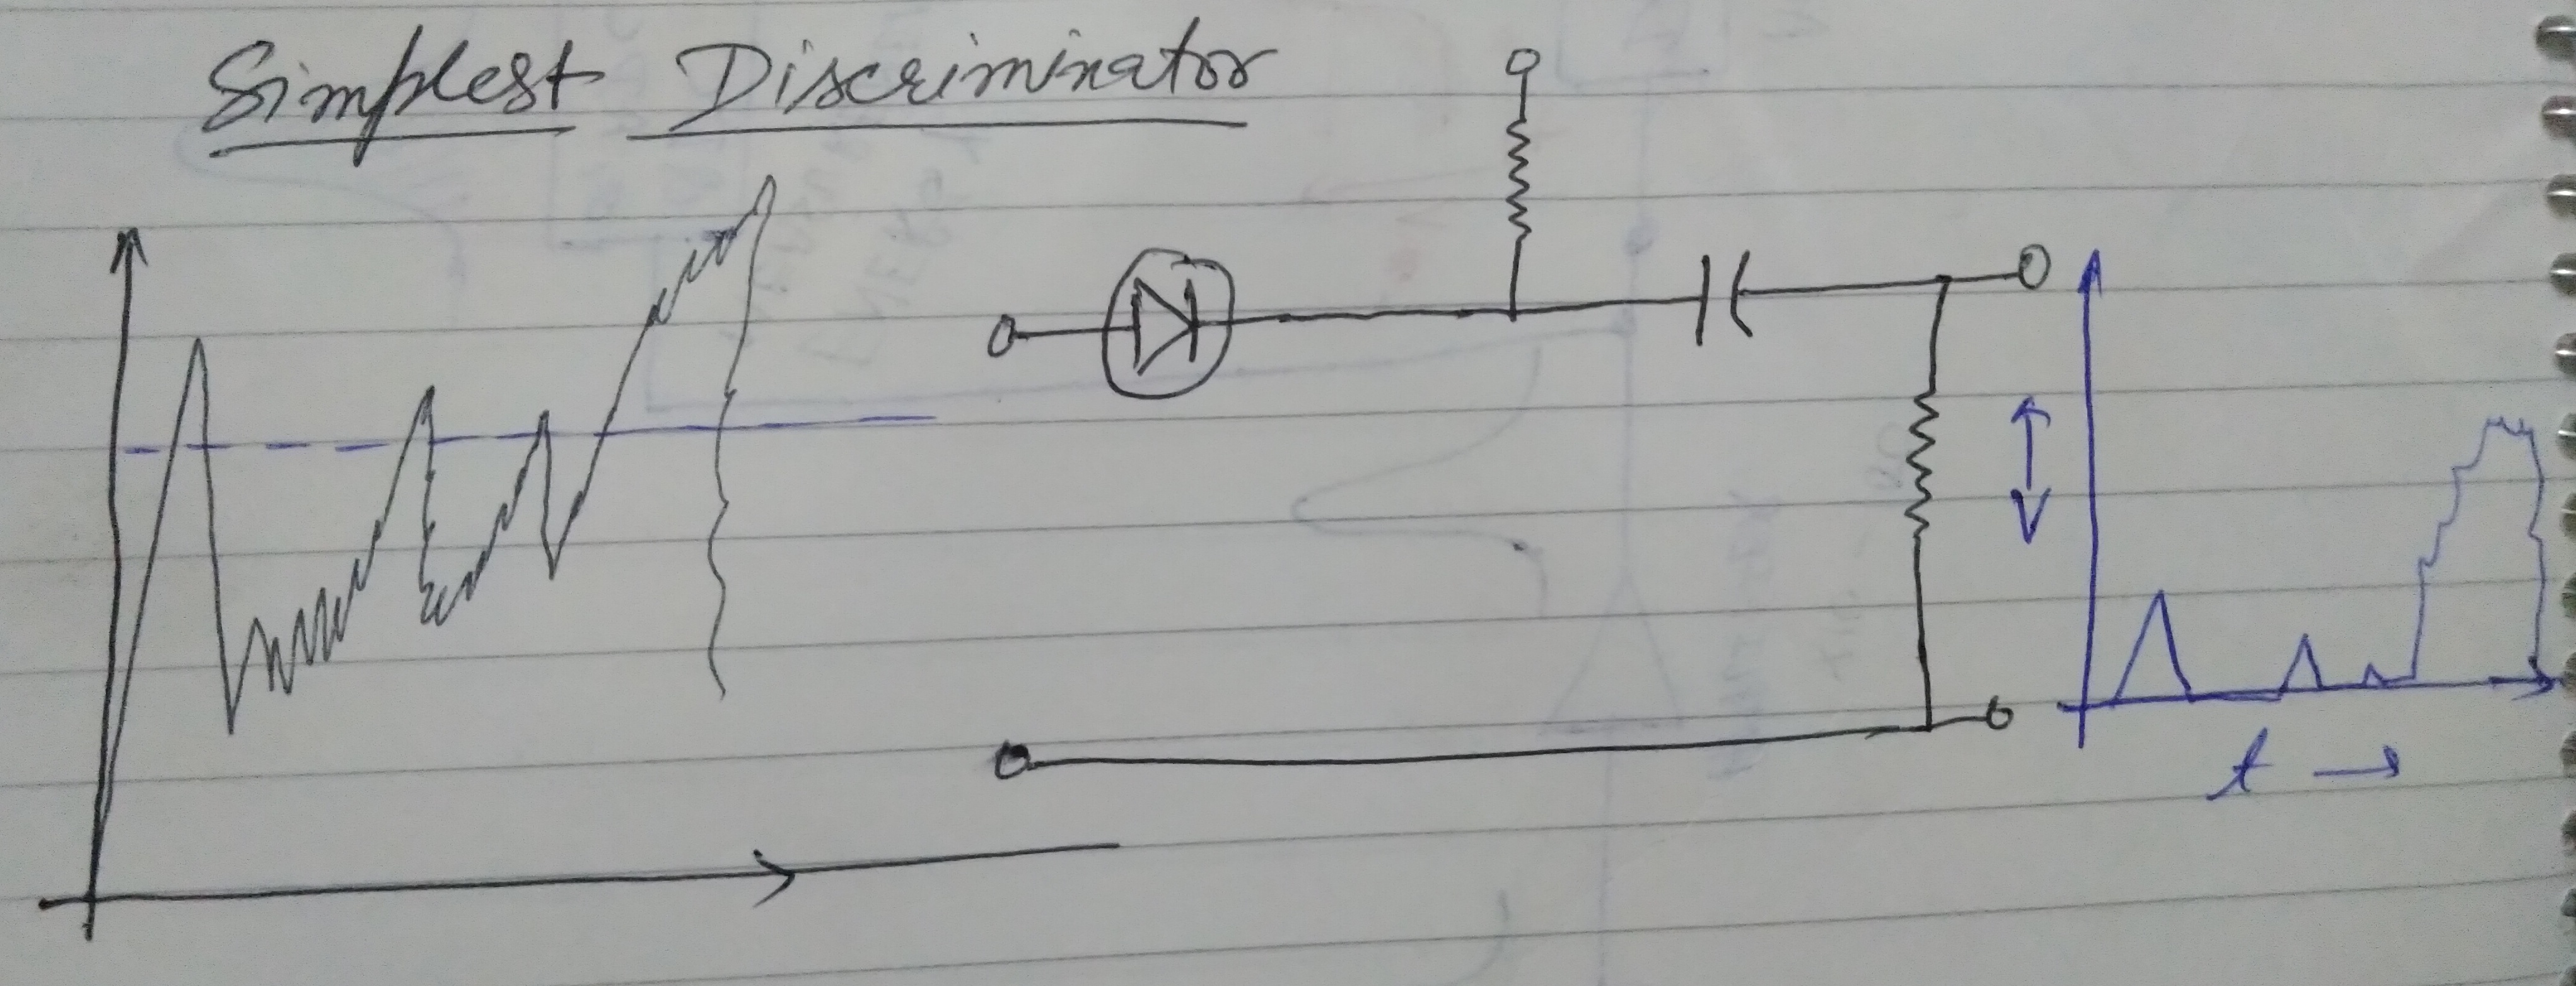 Simplest Discriminator
t →